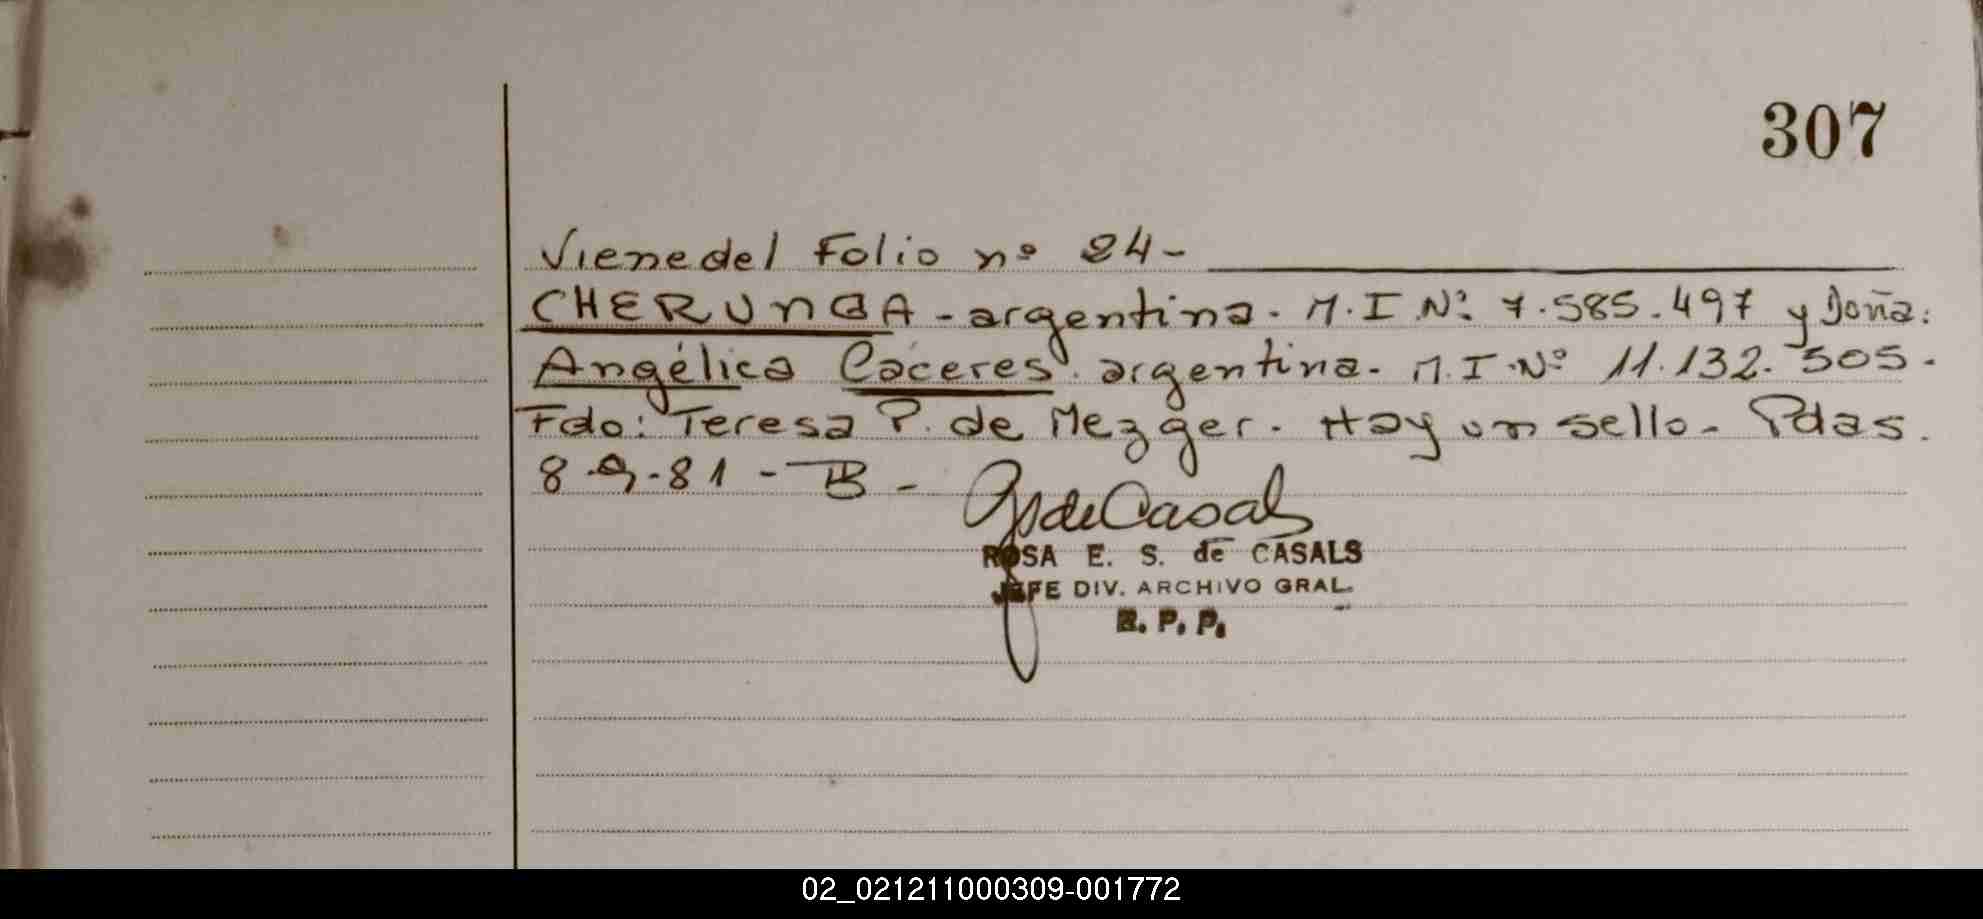 307
Viene del Folio nº 24-
CHERUNGA - argentina. M.I Nº: 7.585.497 y Doña:
Angélica Cáceres. argentina. M.I.Nº 11.132.505.
Fdo: Teresa P. de Mezger. Hay un sello. Pdas.
8.9.81 - B -
de Casals
ROSA E. S. de CASALS
JEFE DIV. ARCHIVO GRAL.
R. P. P.
02_021211000309-001772